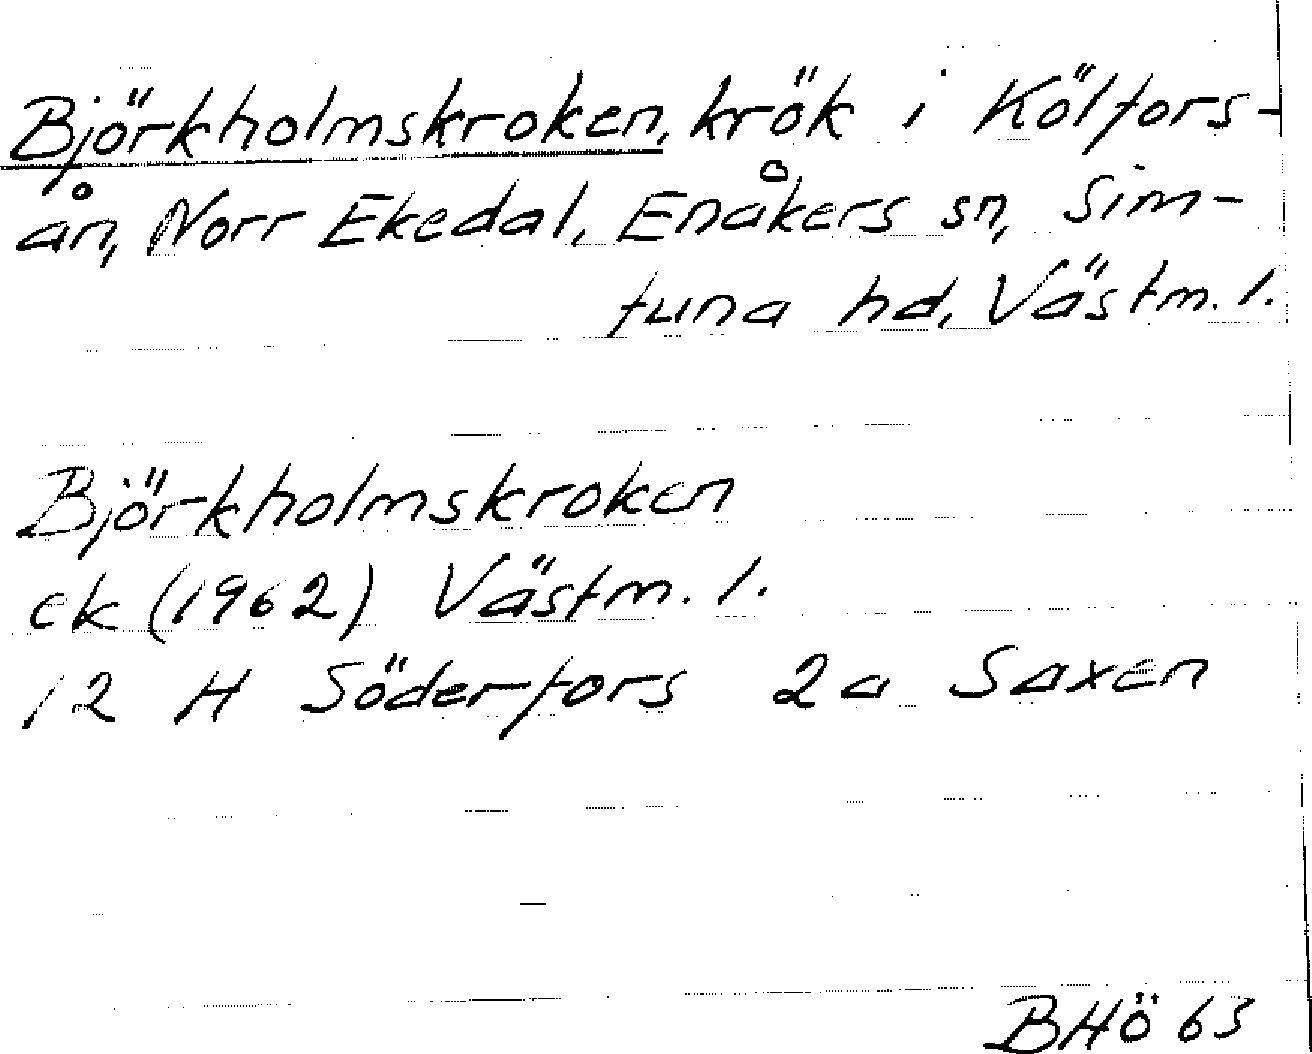 Björkholmskroken, krök i Kölfors-
ån, Norr Ekedal, Enåkers sn, Sim-
tuna hd, Västm. l.
Björkholmskroken
ek (1962) Västm. l.
12 H Söderfors 2a Saxen
BHÖ 63